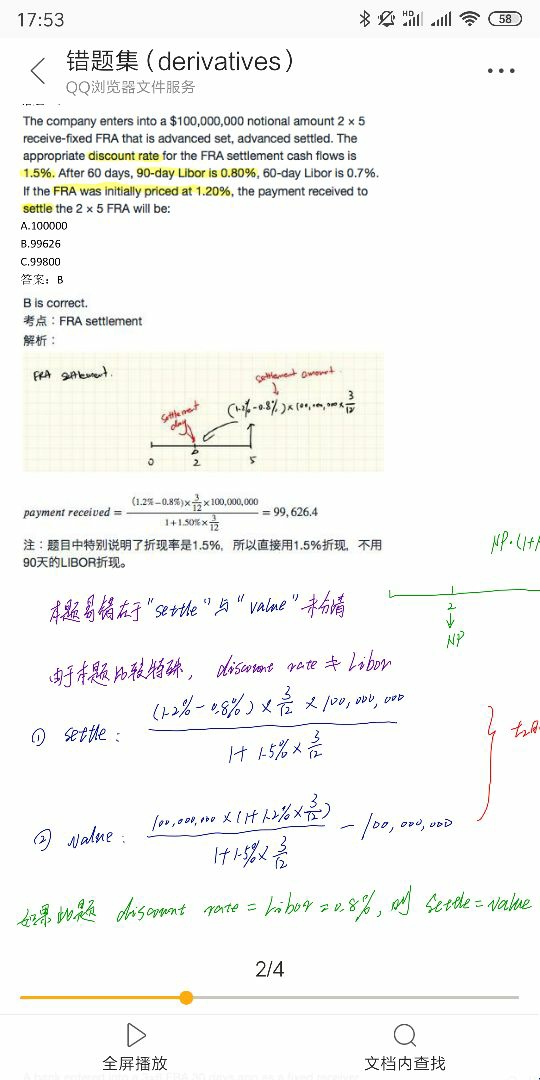 17:53
HD
58
错题集（derivatives）
QQ浏览器文件服务
The company enters into a $100,000,000 notional amount 2 × 5
receive-fixed FRA that is advanced set, advanced settled. The
appropriate discount rate for the FRA settlement cash flows is
1.5%. After 60 days, 90-day Libor is 0.80%, 60-day Libor is 0.7%.
If the FRA was initially priced at 1.20%, the payment received to
settle the 2 × 5 FRA will be:
A.100000
B.99626
C.99800
答案：B
B is correct.
考点：FRA settlement
解析：
FRA settlement.
settlement amount
settlement day
(1.2%-0.8%)×100,000,000×3/12
0 2 5
payment received = (1.2%−0.8%)×3/12×100,000,000 / 1+1.50%×3/12 = 99,626.4
注：题目中特别说明了折现率是1.5%，所以直接用1.5%折现，不用
90天的LIBOR折现。
NP·(1+
2
NP
本题易错在于"settle"与"value"未分清
由于本题比较特殊, discount rate ≠ Libor
① settle: (1.2%-0.8%)×3/12×100,000,000 / 1+1.5%×3/12
② value: 100,000,000×(1+1.2%×3/12) / 1+1.5%×3/12 - 100,000,000
如果此题 discount rate = Libor = 0.8%, 则 settle = value
2/4
全屏播放
文档内查找